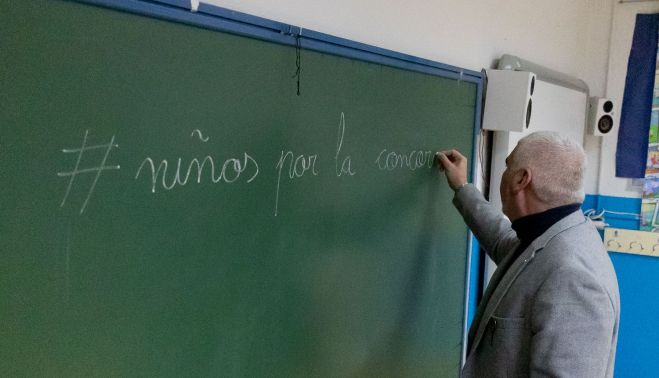 #niños por la concor